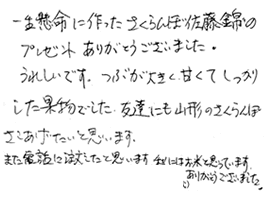 一生懸命に作ったさくらんぼ(佐藤錦)の
プレゼントありがとうございました。
うれしいです。つぶが大きく、甘くてしっかり
した果物でした。友達にも山形のさくらんぼ
さしあげたいと思います。
また電話に注文したと思います 秋にはお米と思っています。
ありがとうございました